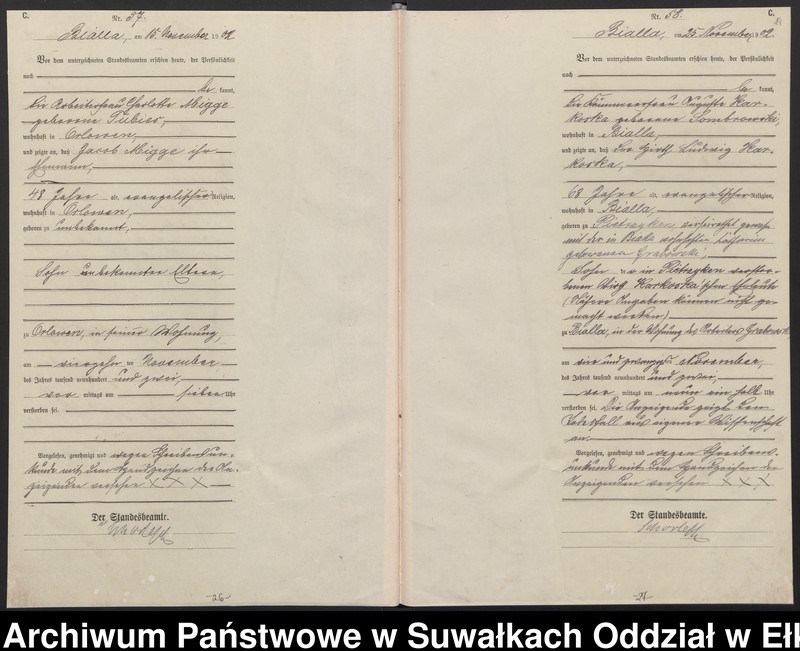 C.
Nr. 37.
Bialla, am 15. November 1902
Vor dem unterzeichneten Standesbeamten erschien heute, der Persönlichkeit
nach
be kannt,
die Arbeiterfrau Charlotte Migge
geborene
wohnhaft in Orlowen,
und zeigte an, daß Jacob Migge ihr
Ehemann,
48 Jahre alt, evangelischer Religion,
wohnhaft in Orlowen,
geboren zu unbekannt,
Sohn unbekannter Eltern,
zu Orlowen, in seiner Wohnung,
am vierzehn ten November
des Jahres tausend neunhundert und zwei,
vor mittags um sieben Uhr
verstorben sei.
Vorgelesen, genehmigt und wegen Schreibensun-
kunde mit dem Handzeichen der An-
zeigenden versehen X X X
Der Standesbeamte.
-26-
Nr. 38.
C.
Bialla, am 25. November 1902
Vor dem unterzeichneten Standesbeamten erschien heute, der Persönlichkeit
nach
be kannt,
die Auguste Kar-
koska geborene Dombrowski,
wohnhaft in Bialla,
und zeigte an, daß der Hirth Ludwig Kar-
koska,
68 Jahre alt, evangelischer Religion,
wohnhaft in Bialla,
geboren zu Pietrzyken, verheirathet gewesen
mit der in Bialla
geborenen Grabowski,
Sohn des in Pietrzyken verstor-
benen Wirth Karkoska'schen Eheleute
(Nähere Angaben können nicht ge-
macht werden)
zu Bialla, in der Wohnung des Arbeiters Grabowski
am vier und zwanzigsten November,
des Jahres tausend neunhundert und zwei,
vor mittags um neun ein halb Uhr
verstorben sei. Die Anzeigende zeigt den
Todesfall aus eigener Wissenschaft
an.
Vorgelesen, genehmigt und wegen Schreibens-
unkunde mit dem Handzeichen der
Anzeigenden versehen X X X
Der Standesbeamte.
-27-
Archiwum Państwowe w Suwałkach Oddział w Ełk